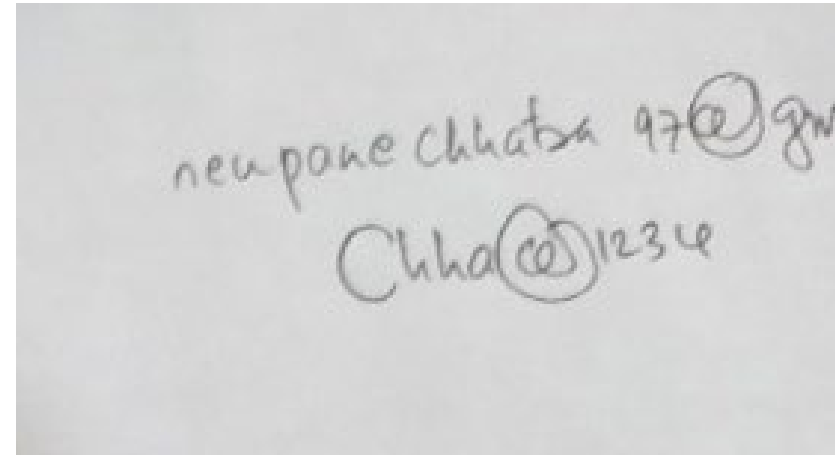 neupane chhatra 97@gm
Chha@1234